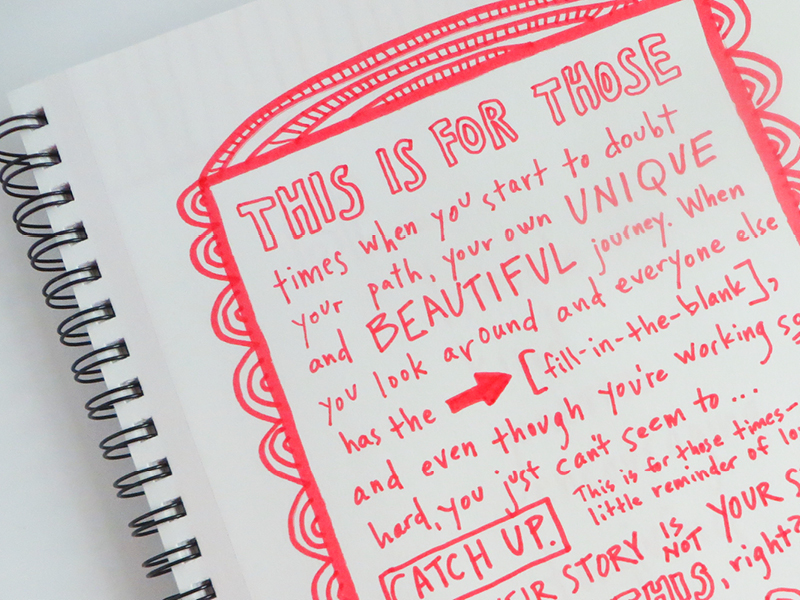 THIS IS FOR THOSE
times when you start to doubt
your path, your own UNIQUE
and BEAUTIFUL journey. When
you look around and everyone else
has the → [fill-in-the-blank],
and even though you're working so
hard, you just can't seem to ...
CATCH UP.
This is for those times-
little reminder of
STORY IS NOT YOUR
THIS, right?